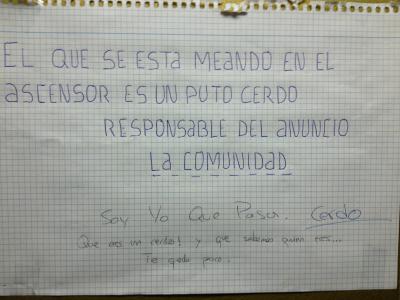 EL QUE SE ESTA MEANDO EN EL
ASCENSOR ES UN PUTO CERDO
RESPONSABLE DEL ANUNCIO
LA COMUNIDAD
Soy Yo Que Pasa. Cerdo
Que eres un cerdo! y que sabemos quien eres...
Te queda poco.